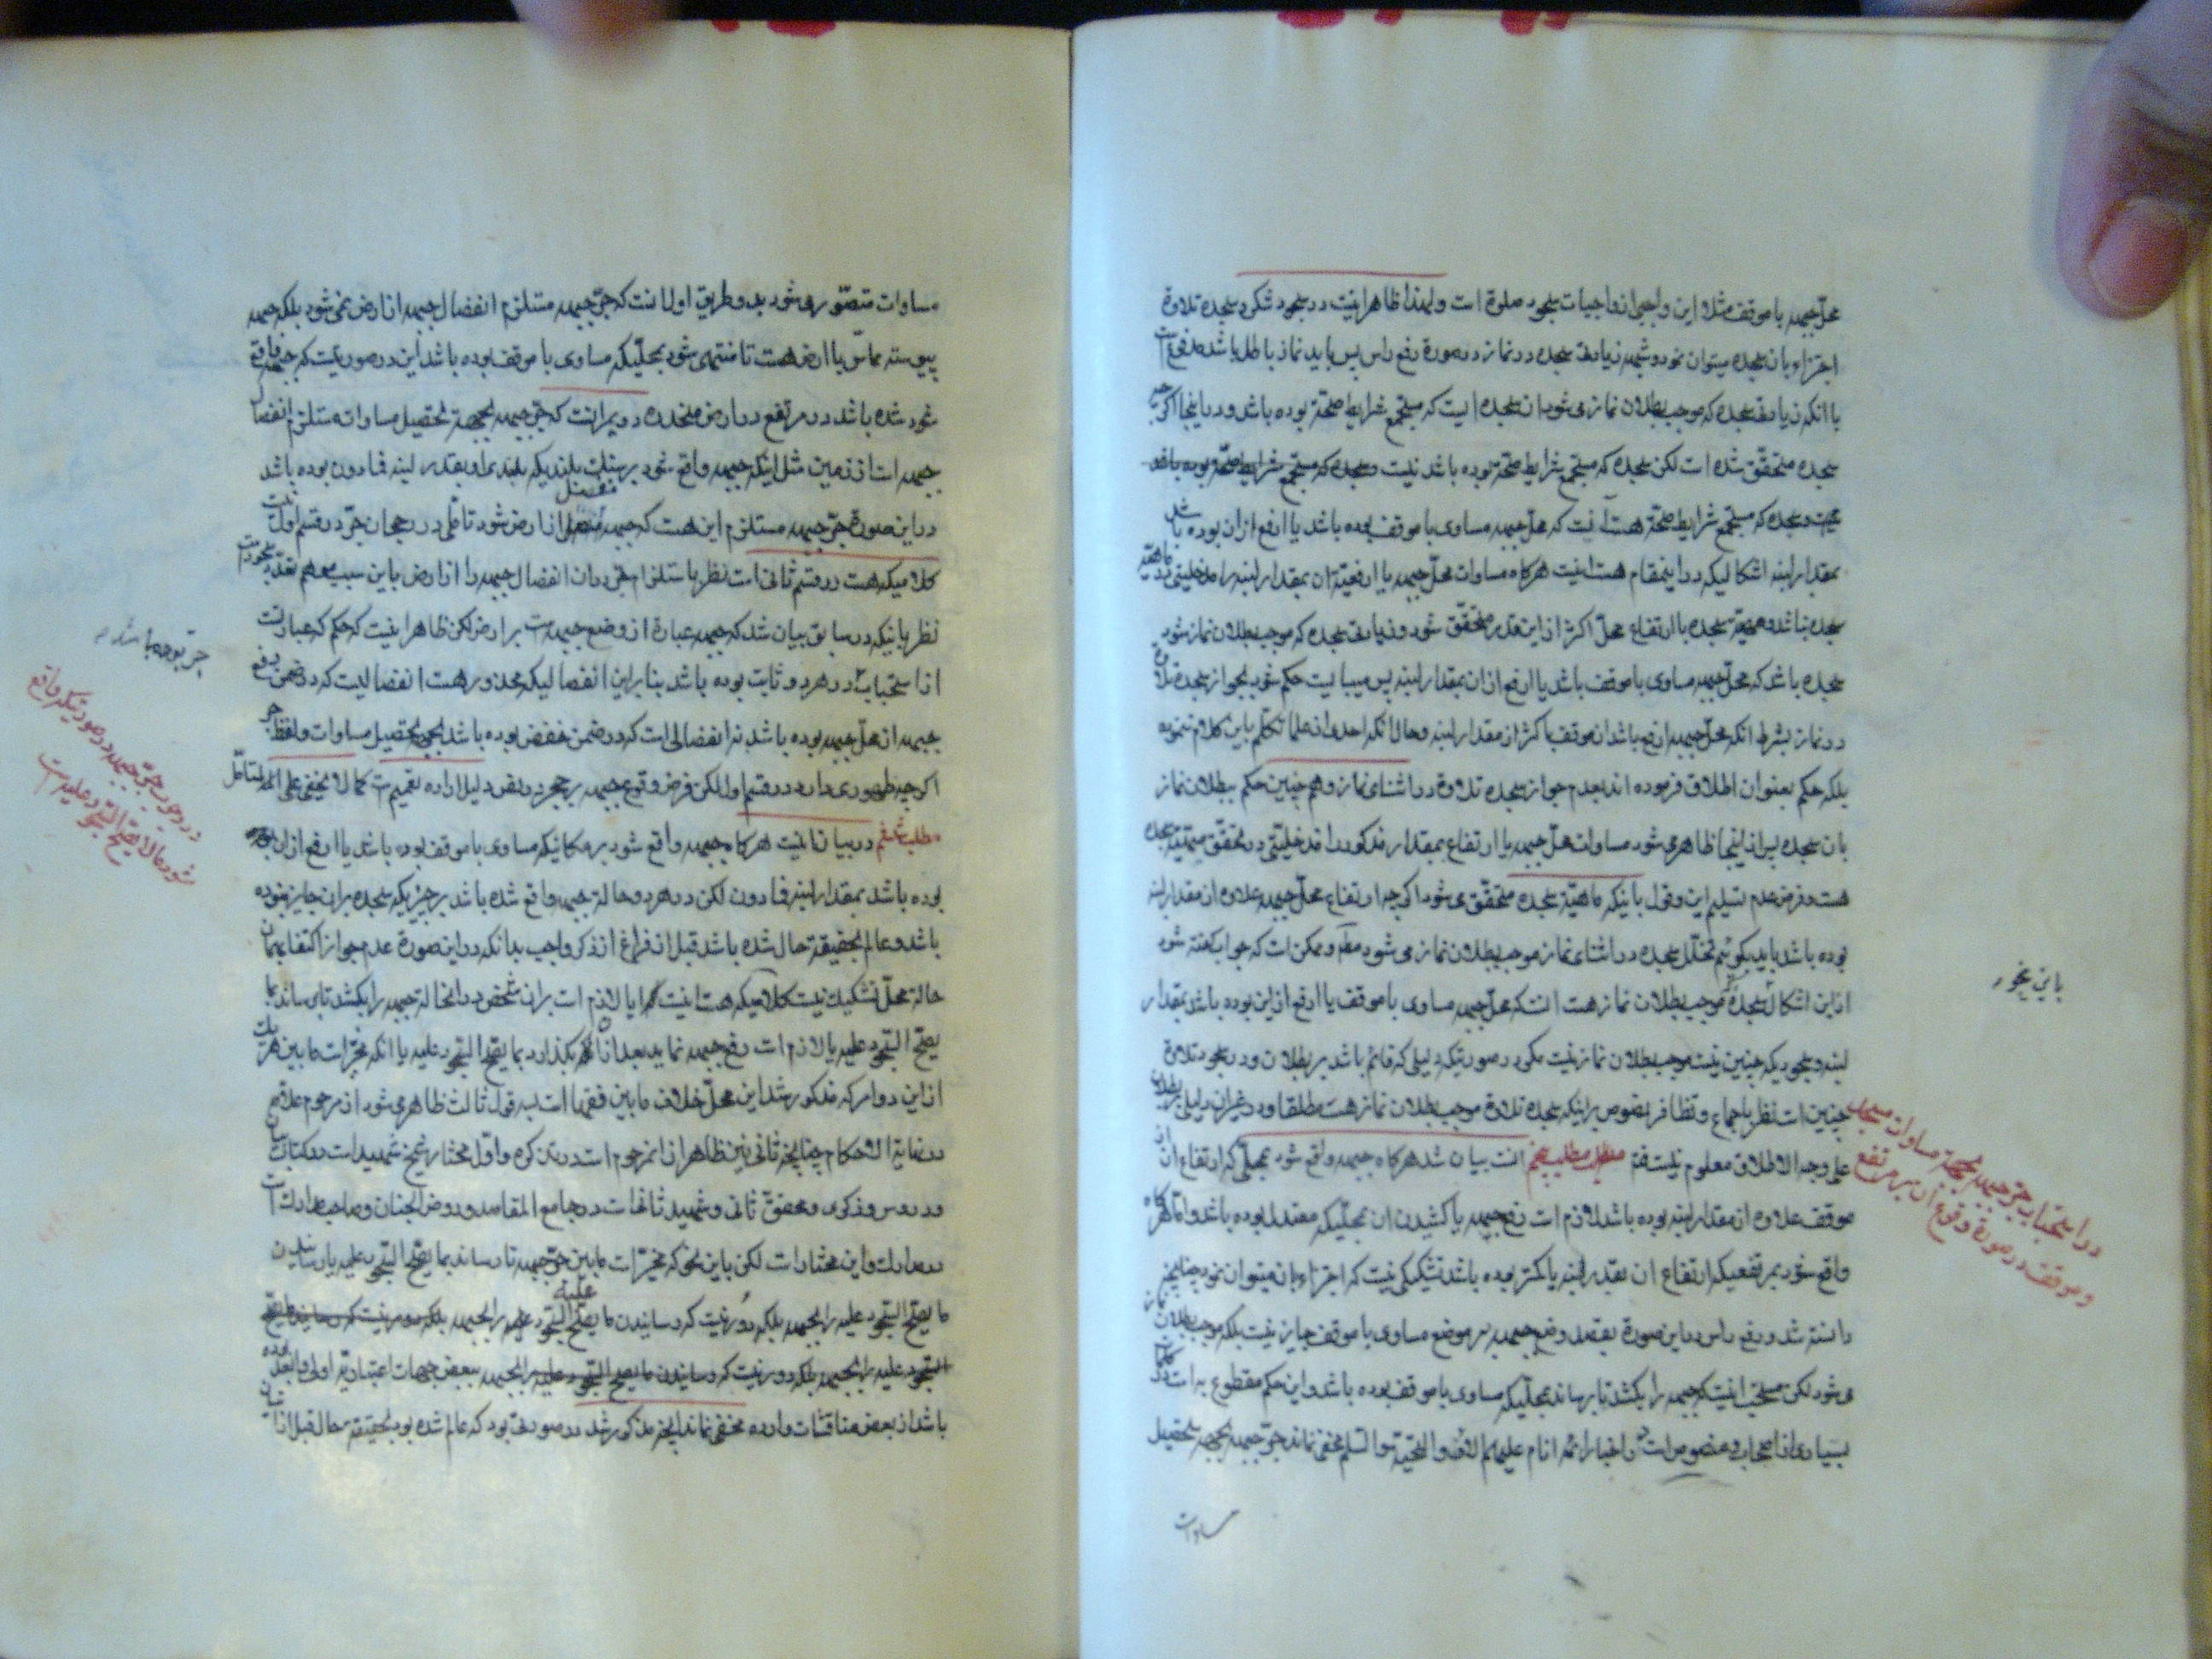 محلّ جبهه با موقف مثلا این واجبی از واجبات سجود صلوة است ولهذا ظاهر اینست در سجود شکر و سجده تلاوة
اجتزاء بان سجده میتوان نمود و شبهه زیادتی سجده در نماز در صورة رفع راس پس باید نماز باطل باشد مدفوع است
با انکه زیادتی سجده که موجب بطلان نماز می شود ان سجده ایست که مستجمع شرایط صحّة بوده باشد و در اینجا اکر چه
سجده متحقّق شده است لکن سجده که مستجمع شرایط صحّة بوده باشد نیست
و سجده که مستجمع شرایط صحّة هست آنست که محلّ جبهه مساوی با موقف بوده باشد یا ارفع از ان بوده باشد
بمقدار لبنه اشکالیکه در اینمقام هست اینست هرکاه مساوات محلّ جبهه یا ارفعیّة ان بمقدار لبنه را مدخلیتی در ماهیّة
سجده نباشد و ماهیّة سجده با ارتفاع محلّ اکثر از این قدر متحقّق شود و زیادتی سجده که موجب بطلان نماز شود
سجده باشد که محلّ جبهه مساوی با موقف باشد یا ارفع از ان بمقدار لبنه پس میبایست حکم شود بجواز سجده تلاوة
در نماز بشرط انکه محلّ جبهه ارفع باشد از موقف باکثر از مقدار لبنه و حال انکه احدی از علما تکلّم باین کلام ننموده
بلکه حکم بعنوان اطلاق فرموده اند بعدم جواز سجده تلاوة در اثنای نماز و هم چنین حکم ببطلان نماز
بان سجده پس از اینجا ظاهر می شود مساوات محلّ جبهه یا ارتفاع بمقدار مذکور را مدخلیّتی در تحقّق مهیّة سجده
هست و فرض عدم تسلیم این و قول باینکه ماهیّة سجده متحقّق می شود اکر چه ارتفاع محلّ جبهه علاوه از مقدار لبنه
بوده باشد باید بکوئیم تخلّل سجده در اثنای نماز موجب بطلان نماز می شود مط و ممکن است که جواب کفته شود
از این اشکال سجدهٔ که موجب بطلان نماز هست انست که محلّ جبهه مساوی با موقف یا ارفع از این بوده باشد بمقدار
لبنه و سجودیکه چنین نیست موجب بطلان نماز نیست مکر در صورتیکه دلیلی که قائم باشد بر بطلان و در سجود تلاوة
باین نحو
چنین است نظر باجماع و تظافر نصوص براینکه سجده تلاوة موجب بطلان نماز هست مطلقا و در غیر ان دلیلی بر بطلان
علی وجه الاطلاق معلوم نیست فتم مطلب پنجم انست بیان شد هرکاه جبهه واقع شود بمحلّی که ارتفاع ان از
در استحباب جرّ جبهه بجهة مساوات مسجد
و موقف در صورة وقوع ان بر مرتفع
موقف علاوه از مقدار لبنه بوده باشد لازم است رفع جبهه یا کشیدن ان بمحلّیکه معتدل بوده باشد و اما هرکاه
واقع شود بمرتفعیکه ارتفاع ان بقدر لبنه یا کمتر بوده باشد تشکیکی نیست که اجتزاء بان میتوان نمود چنانچه
دانسته شد و رفع راس در این صورة بقصد وضع جبهه بر موضع مساوی با موقف جایز نیست بلکه موجب بطلان نماز
می شود لکن مستحبّ اینست که جبهه را بکشد تا برساند بمحلّیکه مساوی با موقف بوده باشد و این حکم مقطوع به است در کلام
بسیاری از اصحاب و منصوص است در اخبار ائمّه انام علیهم الاف التحیّة والسّلم مخفی نماند جرّ جبهه بجهة تحصیل
مساوات
مساوات متصّور می شود بدو طریق اول انست که جرّ جبهه مستلزم انفصال جبهه از ارض نمی شود بلکه جبهه
پیوسته مماسّ با ارض هست تا منتهی شود بمحلّیکه مساوی با موقف بوده باشد این در صورتیست که جبهه واقع
شود شده باشد در مرتفع در ارض منحدره دویم انست که جرّ جبهه بجهة تحصیل مساوات مستلزم انفصال
جبهه است از زمین مثل اینکه جبهه واقع شود بر پشت بلندیکه بلندی او بقدر لبنه فما دون بوده باشد
در این صورة جرّ جبهه مستلزم این هست که جبهه منفصل از ارض شود تاملی در رجحان جرّ در قسم اول نیست
کلامیکه هست در قسم ثانی است نظر باستلزام جرّ در ان انفصال جبهه را از ارض باین سبب موهم تعدّد سجود است
نظر باینکه در سابق بیان شد که جبهه عبارة از وضع جبهه است بر ارض لکن ظاهر اینست که حکم که عبارتست
از استحباب در هر دو ثابت بوده باشد بنا براین انفصالیکه محذور هست انفصالیست که در ضمن رفع
جرّ بوده باشد
جبهه از محلّ جبهه بوده باشد نه انفصالی است که در ضمن خفض بوده باشد بجهة تحصیل مساوات و لفظ جرّ
اکر چه ظهوری دارد در قسم اول لکن فرض وقوع جبهه بر حجر در نصّ دلیل اراده تعمیم است کما لا یخفی علی المتامّل
مطلب ششم در بیان اینست هرکاه جبهه واقع شود بر مکانیکه مساوی با موقف بوده باشد یا ارفع از ان بوده
در وجوب جرّ جبهه در صورتیکه واقع
شود بما لا یصحّ السّجود علیه است
بوده باشد بمقدار لبنه فما دون لکن در هر دو حالة جبهه واقع شده باشد بر چیزیکه سجده بران جایز نبوده
باشد و عالم بحقیقة حال شده باشد قبل از فراغ از ذکر واجب بدانکه در این صورة عدم جواز اکتفا بهمان
حالة محلّ تشکیک نیست کلامیکه هست اینست که ایا لازم است بران شخص در انحالة جبهه را بکشد تا برساند بما
یصحّ السّجود علیه یا لازم است رفع جبهه نماید بعد از ان بکذارد بما یصحّ السّجود علیه یا انکه مخیّر است ما بین هر یک
از این دو امر که مذکور شد این محلّ خلاف ما بین فقهاء است سه قول ثالث ظاهر می شود از مرحوم علامه
در نهایة الاحکام چنانچه ثانی نیز ظاهر از انمرحوم است در تذکره و اوّل مختار شیخ شهید است در کتاب بیان
و دروس و ذکری و محقق ثانی و شهید ثانی است در جامع المقاصد و روض الجنان و صاحب مدارک است
در مدارک و این مختار است لکن باین نحو که مخیّر است ما بین جرّ جبهه تا رساند بما یصحّ السّجود علیه یا رسانیدن
ما یصحّ السّجود علیه را بجبهه بلکه دور نیست که رسانیدن ما یصحّ السّجود علیه را بجبهه بلکه دور نیست که رسانیدن ما یصحّ
السّجود علیه را بجبهه بلکه دور نیست که رسانیدن ما یصحّ السّجود علیه را بجبهه ببعض جهات اعتباریّه اولی و ابعد بوده
باشد از بعض مناقشات وارده مخفی نماند انچه مذکور شد در صورتی بود که عالم شده بود بحقیقة حال قبل از اتیان